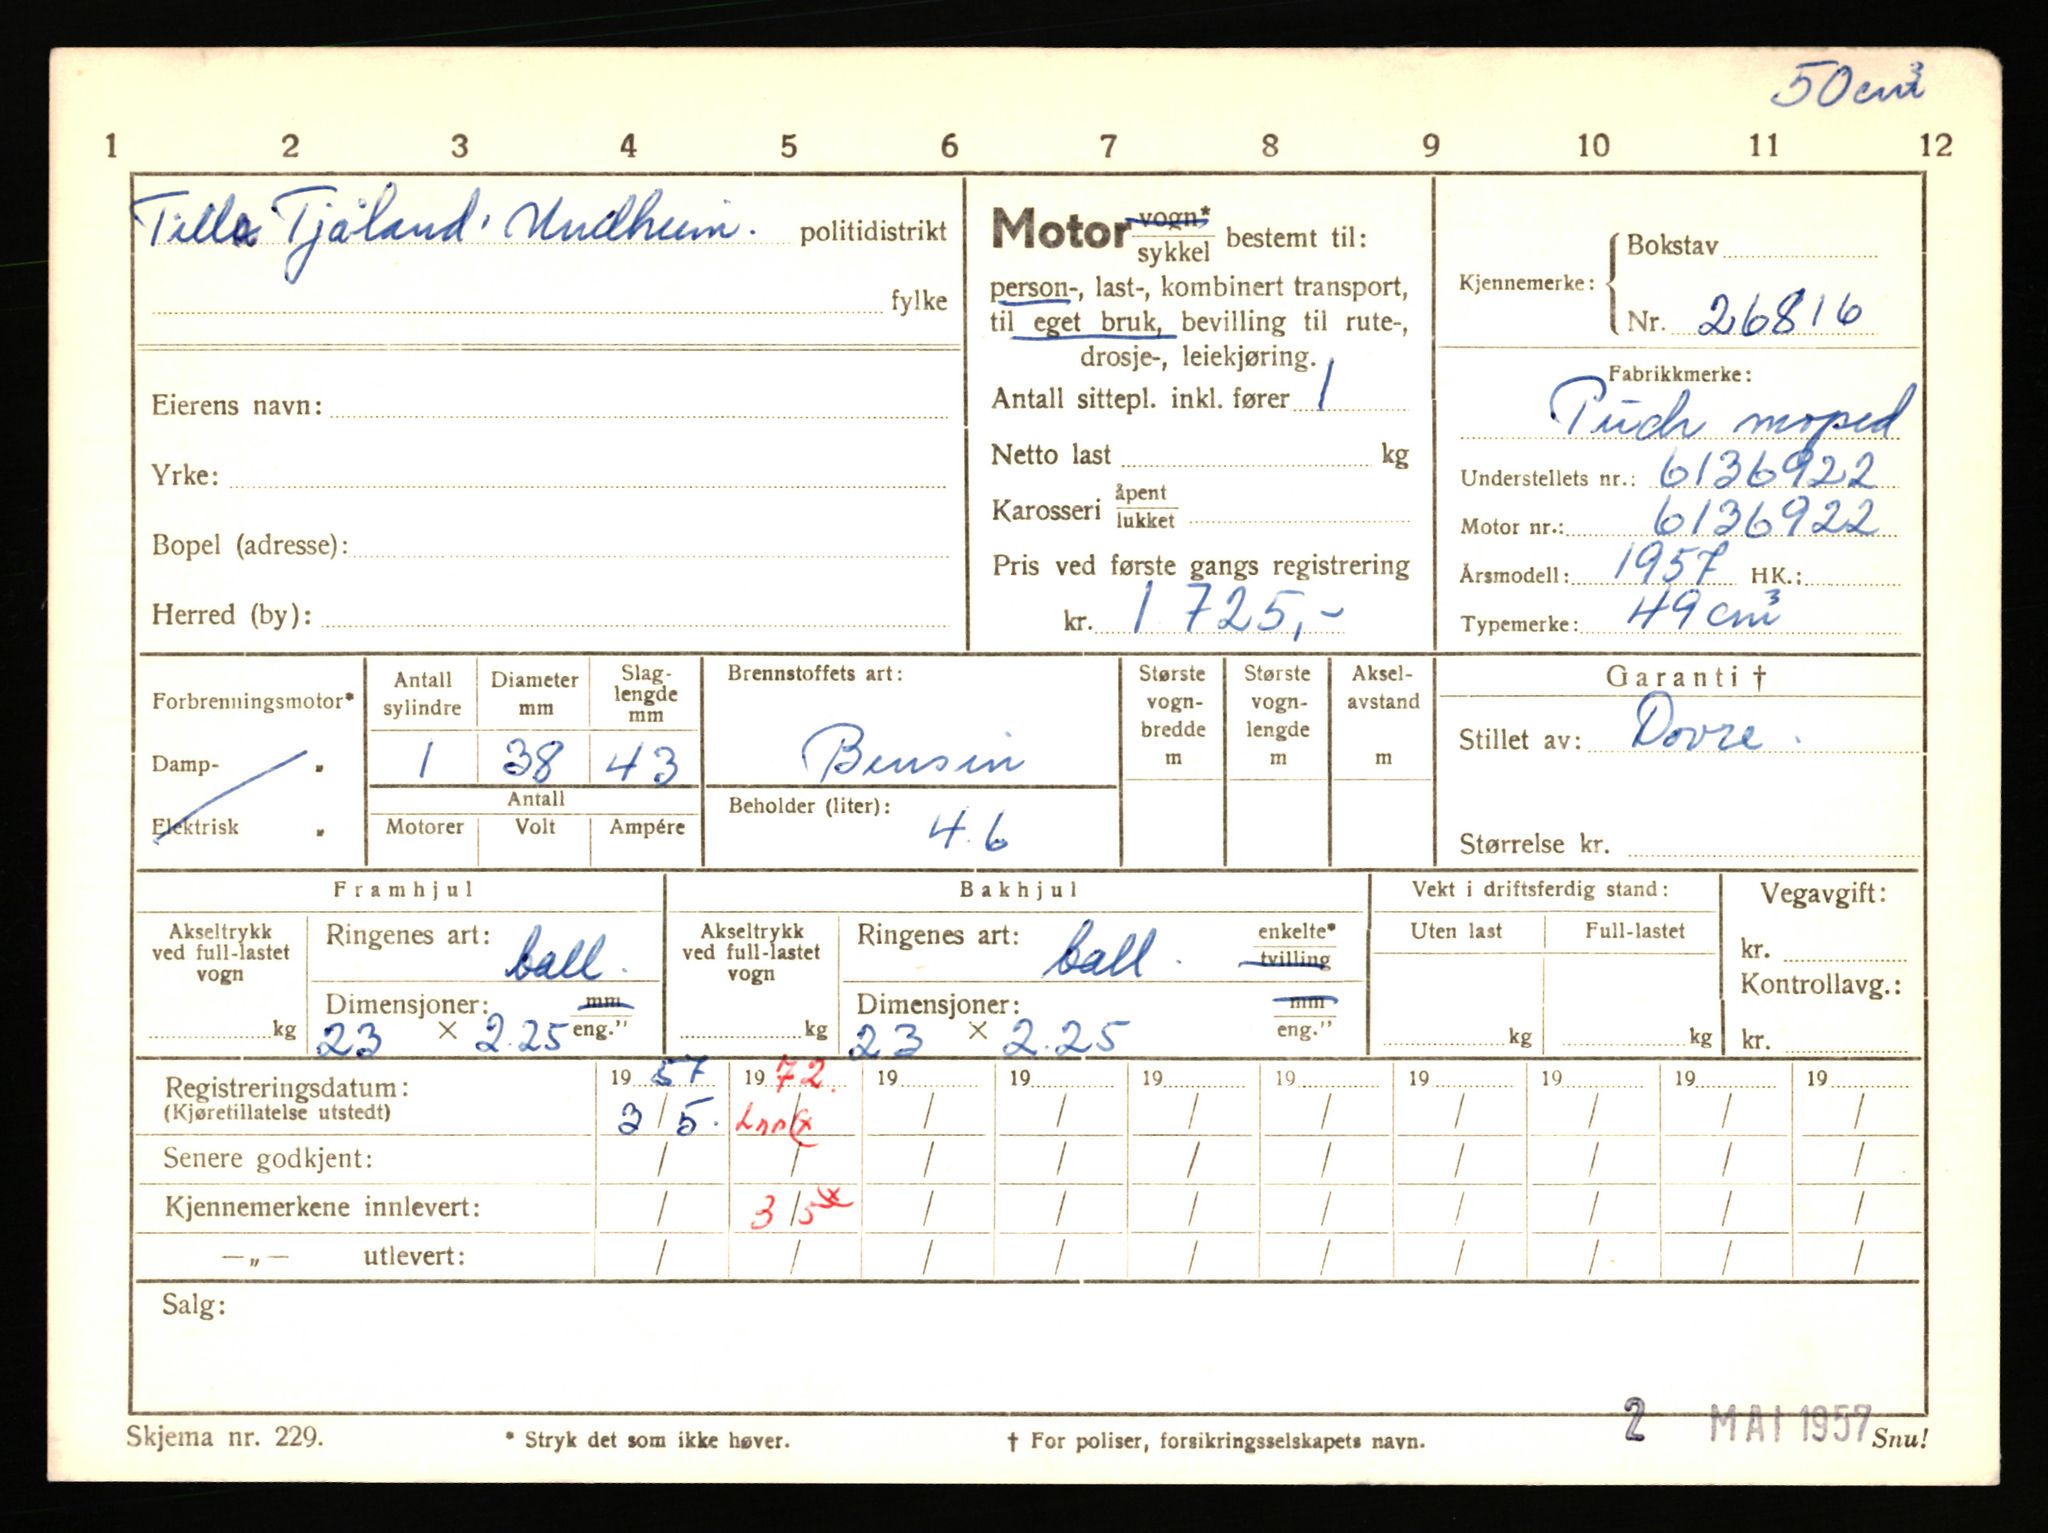 50 cm³
1 2 3 4 5 6 7 8 9 10 11 12
Tilla Tjåland, Undheim. politidistrikt
fylke
Eierens navn:
Yrke:
Bopel (adresse):
Herred (by):
Motor vogn* / sykkel bestemt til:
person-, last-, kombinert transport,
til eget bruk, bevilling til rute-,
drosje-, leiekjøring.
Antall sittepl. inkl. fører 1
Netto last kg
Karosseri åpent / lukket
Pris ved første gangs registrering
kr. 1 725,-
Kjennemerke: Bokstav
Nr. 26816
Fabrikkmerke:
Puch moped
Understellets nr.: 6136922
Motor nr.: 6136922
Årsmodell: 1957 HK.:
Typemerke: 49 cm³
Forbrenningsmotor*
Damp- "
Elektrisk "
Antall sylindre
1
Diameter mm
38
Slag-lengde mm
43
Antall
Motorer Volt Ampére
Brennstoffets art:
Bensin
Beholder (liter):
4.6
Største vogn-bredde m
Største vogn-lengde m
Aksel-avstand m
Garanti †
Stillet av: Dovre.
Størrelse kr.
Framhjul
Akseltrykk ved full-lastet vogn
kg
Ringenes art: ball.
Dimensjoner: mm
23 × 2.25 eng."
Bakhjul
Akseltrykk ved full-lastet vogn
kg
Ringenes art: ball. enkelte* / tvilling
Dimensjoner: mm
23 × 2.25 eng."
Vekt i driftsferdig stand:
Uten last Full-lastet
kg kg
Vegavgift:
kr.
Kontrollavg.:
kr.
Registreringsdatum: 19 57 19 72. 19 19 19 19 19 19 19 19
(Kjøretillatelse utstedt) 3 / 5. / / / / / / / / /
Senere godkjent: / / / / / / / / / /
Kjennemerkene innlevert: / 3 / 5 / / / / / / / /
—„— utlevert: / / / / / / / / / /
Salg:
2 MAI 1957
Skjema nr. 229. * Stryk det som ikke høver. † For poliser, forsikringsselskapets navn. Snu!